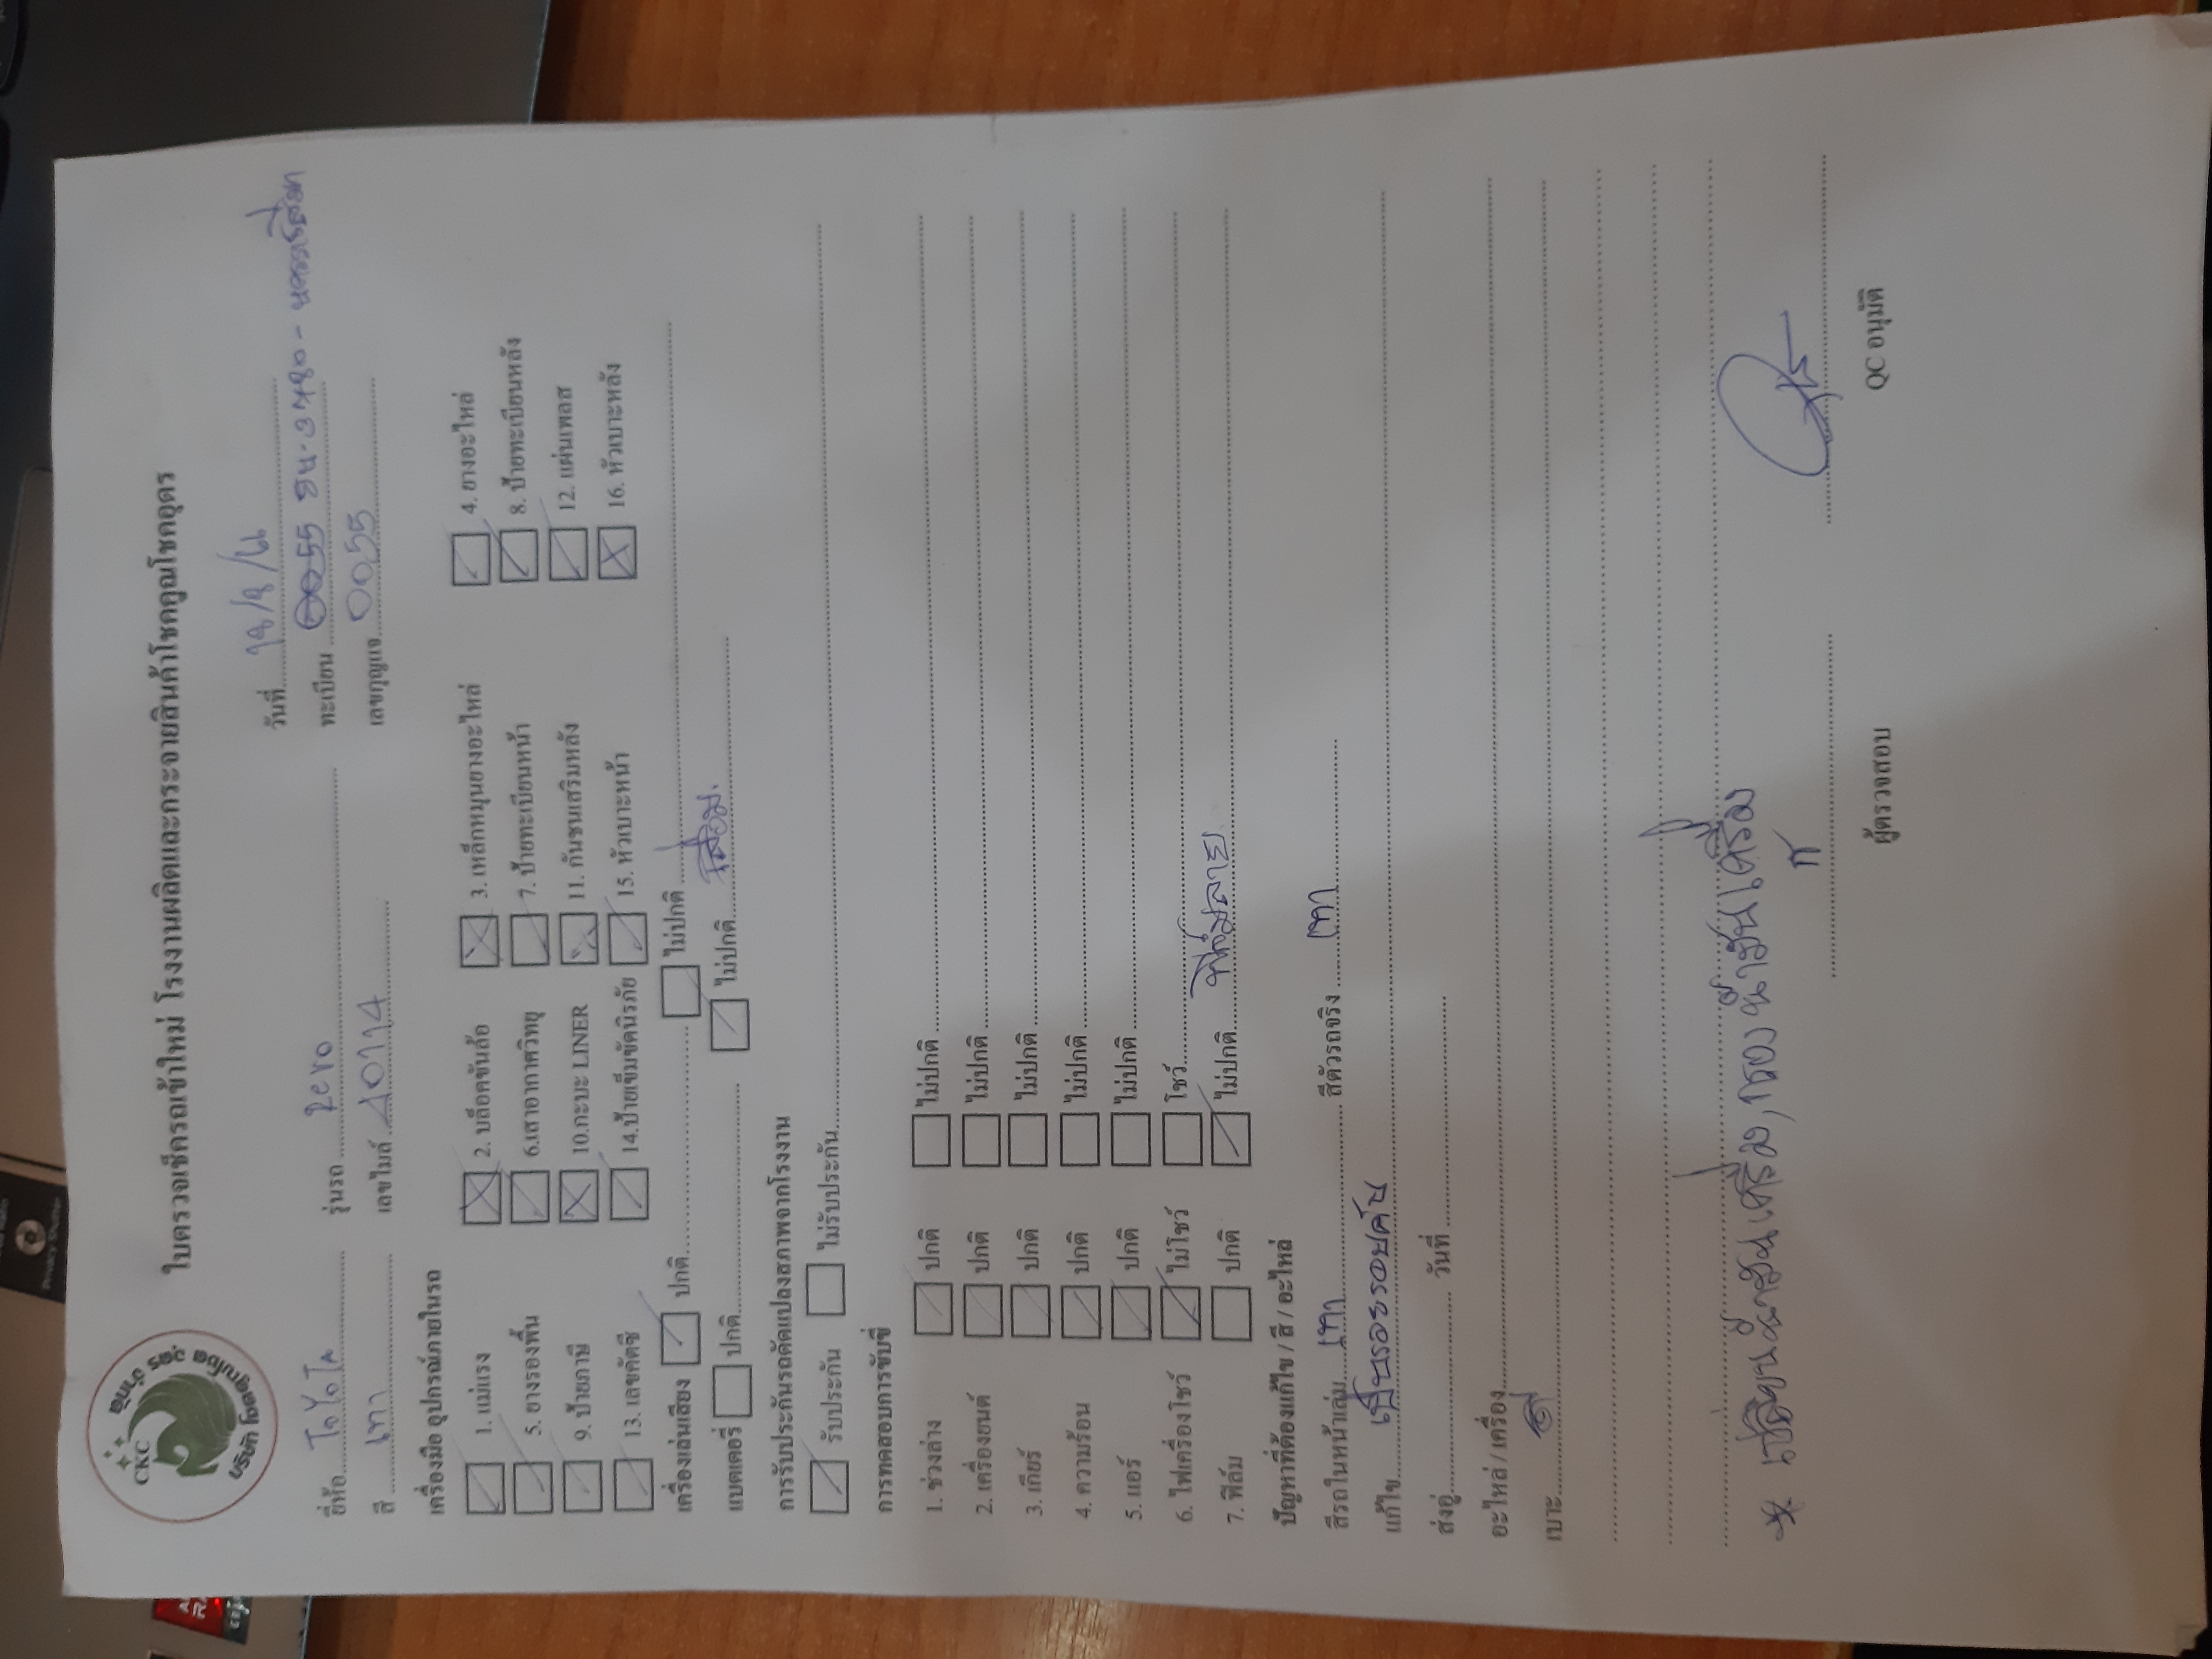 CKC
ใบตรวจเช็ครถเข้าใหม่ โรงงานผลิตและกระจายสินค้าโชคคูณโชคอุดร
วันที่
ยี่ห้อ โตโยโต รุ่นรถ zero ทะเบียน
สี เทา เลขไมล์ เลขกุญแจ 0055
เครื่องมือ อุปกรณ์ภายในรถ
1. แม่แรง 2. บล็อคขันล้อ 3. เหล็กหมุนยางอะไหล่ 4. ยางอะไหล่
5. ยางรองพื้น 6.เสาอากาศวิทยุ 7. ป้ายทะเบียนหน้า 8. ป้ายทะเบียนหลัง
9. ป้ายภาษี 10.กะบะ LINER 11. กันชนเสริมหลัง 12. แผ่นเพลส
13. เลขคัตซี 14.ป้ายเข็มขัดนิรภัย 15. หัวเบาะหน้า 16. หัวเบาะหลัง
เครื่องเล่นเสียง ปกติ ไม่ปกติ
แบตเตอรี่ ปกติ ไม่ปกติ เสื่อม.
การรับประกันรถดัดแปลงสภาพจากโรงงาน
รับประกัน ไม่รับประกัน
การทดสอบการขับขี่
1. ช่วงล่าง ปกติ ไม่ปกติ
2. เครื่องยนต์ ปกติ ไม่ปกติ
3. เกียร์ ปกติ ไม่ปกติ
4. ความร้อน ปกติ ไม่ปกติ
5. แอร์ ปกติ ไม่ปกติ
6. ไฟเครื่องโชว์ ไม่โชว์ โชว์
7. ฟิล์ม ปกติ ไม่ปกติ ฟิล์มลาย
ปัญหาที่ต้องแก้ไข / สี / อะไหล่
สีรถในหน้าเล่ม เทา สีตัวรถจริง เทา
แก้ไข เป็นรอยรอบคัน
ส่งอู่ วันที่
อะไหล่ / เครื่อง
เบาะ
* เปลี่ยนน้ำมันเครื่อง, กรองน้ำมันเครื่อง
ผู้ตรวจสอบ QC อนุมัติ